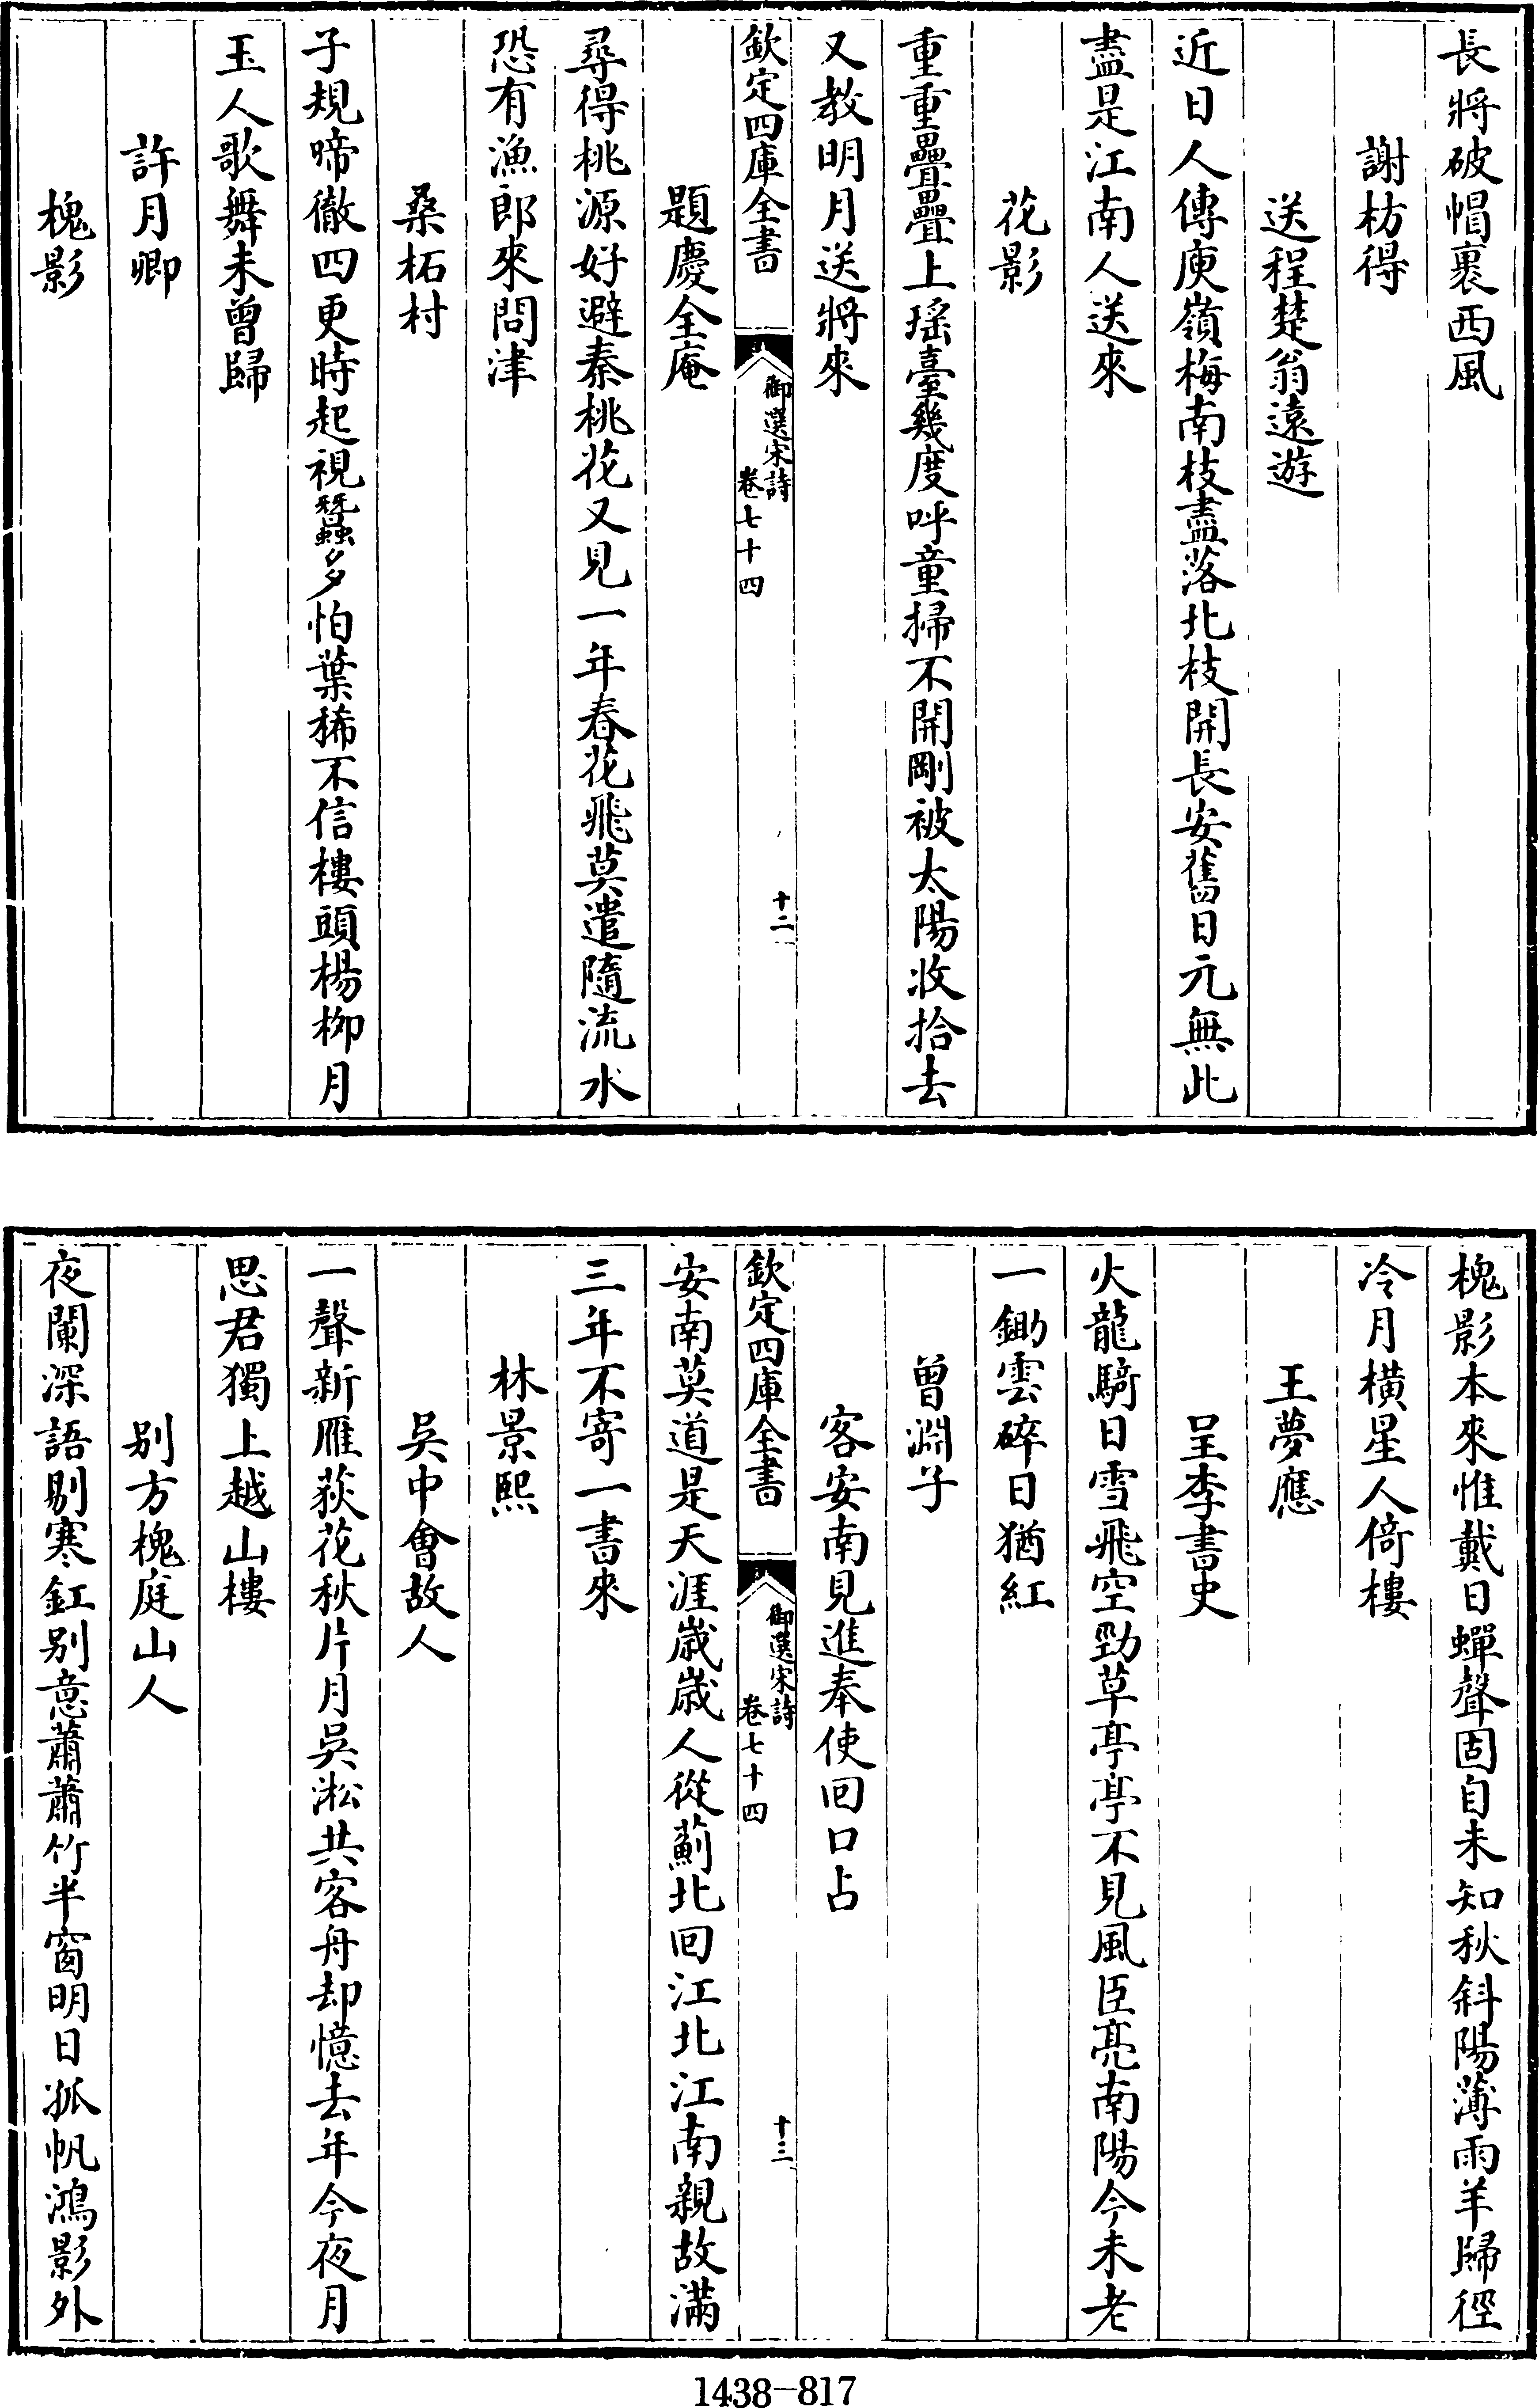 長將破帽裹西風
謝枋得
送程楚翁遠遊
近日人傳庾嶺梅南枝盡落北枝開長安舊日元無此
盡是江南人送來
花影
重重疊疊上瑤臺幾度呼童掃不開剛被太陽收拾去
又教明月送將來
欽定四庫全書
御選宋詩
卷七十四
十二
題慶全庵
尋得桃源好避秦桃花又見一年春花飛莫遣隨流水
恐有漁郎來問津
桑柘村
子規啼徹四更時起視蠶多怕葉稀不信樓頭楊柳月
玉人歌舞未曾歸
許月卿
槐影
槐影本來惟戴日蟬聲固自未知秋斜陽薄雨羊歸徑
冷月橫星人倚樓
王夢應
呈李書史
火龍騎日雪飛空勁草亭亭不見風臣亮南陽今未老
一鋤雲碎日猶紅
曾淵子
客安南見進奉使回口占
欽定四庫全書
御選宋詩
卷七十四
十三
安南莫道是天涯歲歲人從薊北回江北江南親故滿
三年不寄一書來
林景熙
吳中會故人
一聲新雁荻花秋片月吳淞共客舟却憶去年今夜月
思君獨上越山樓
別方槐庭山人
夜闌深語剔寒釭別意蕭蕭竹半窗明日孤帆鴻影外
1438-817